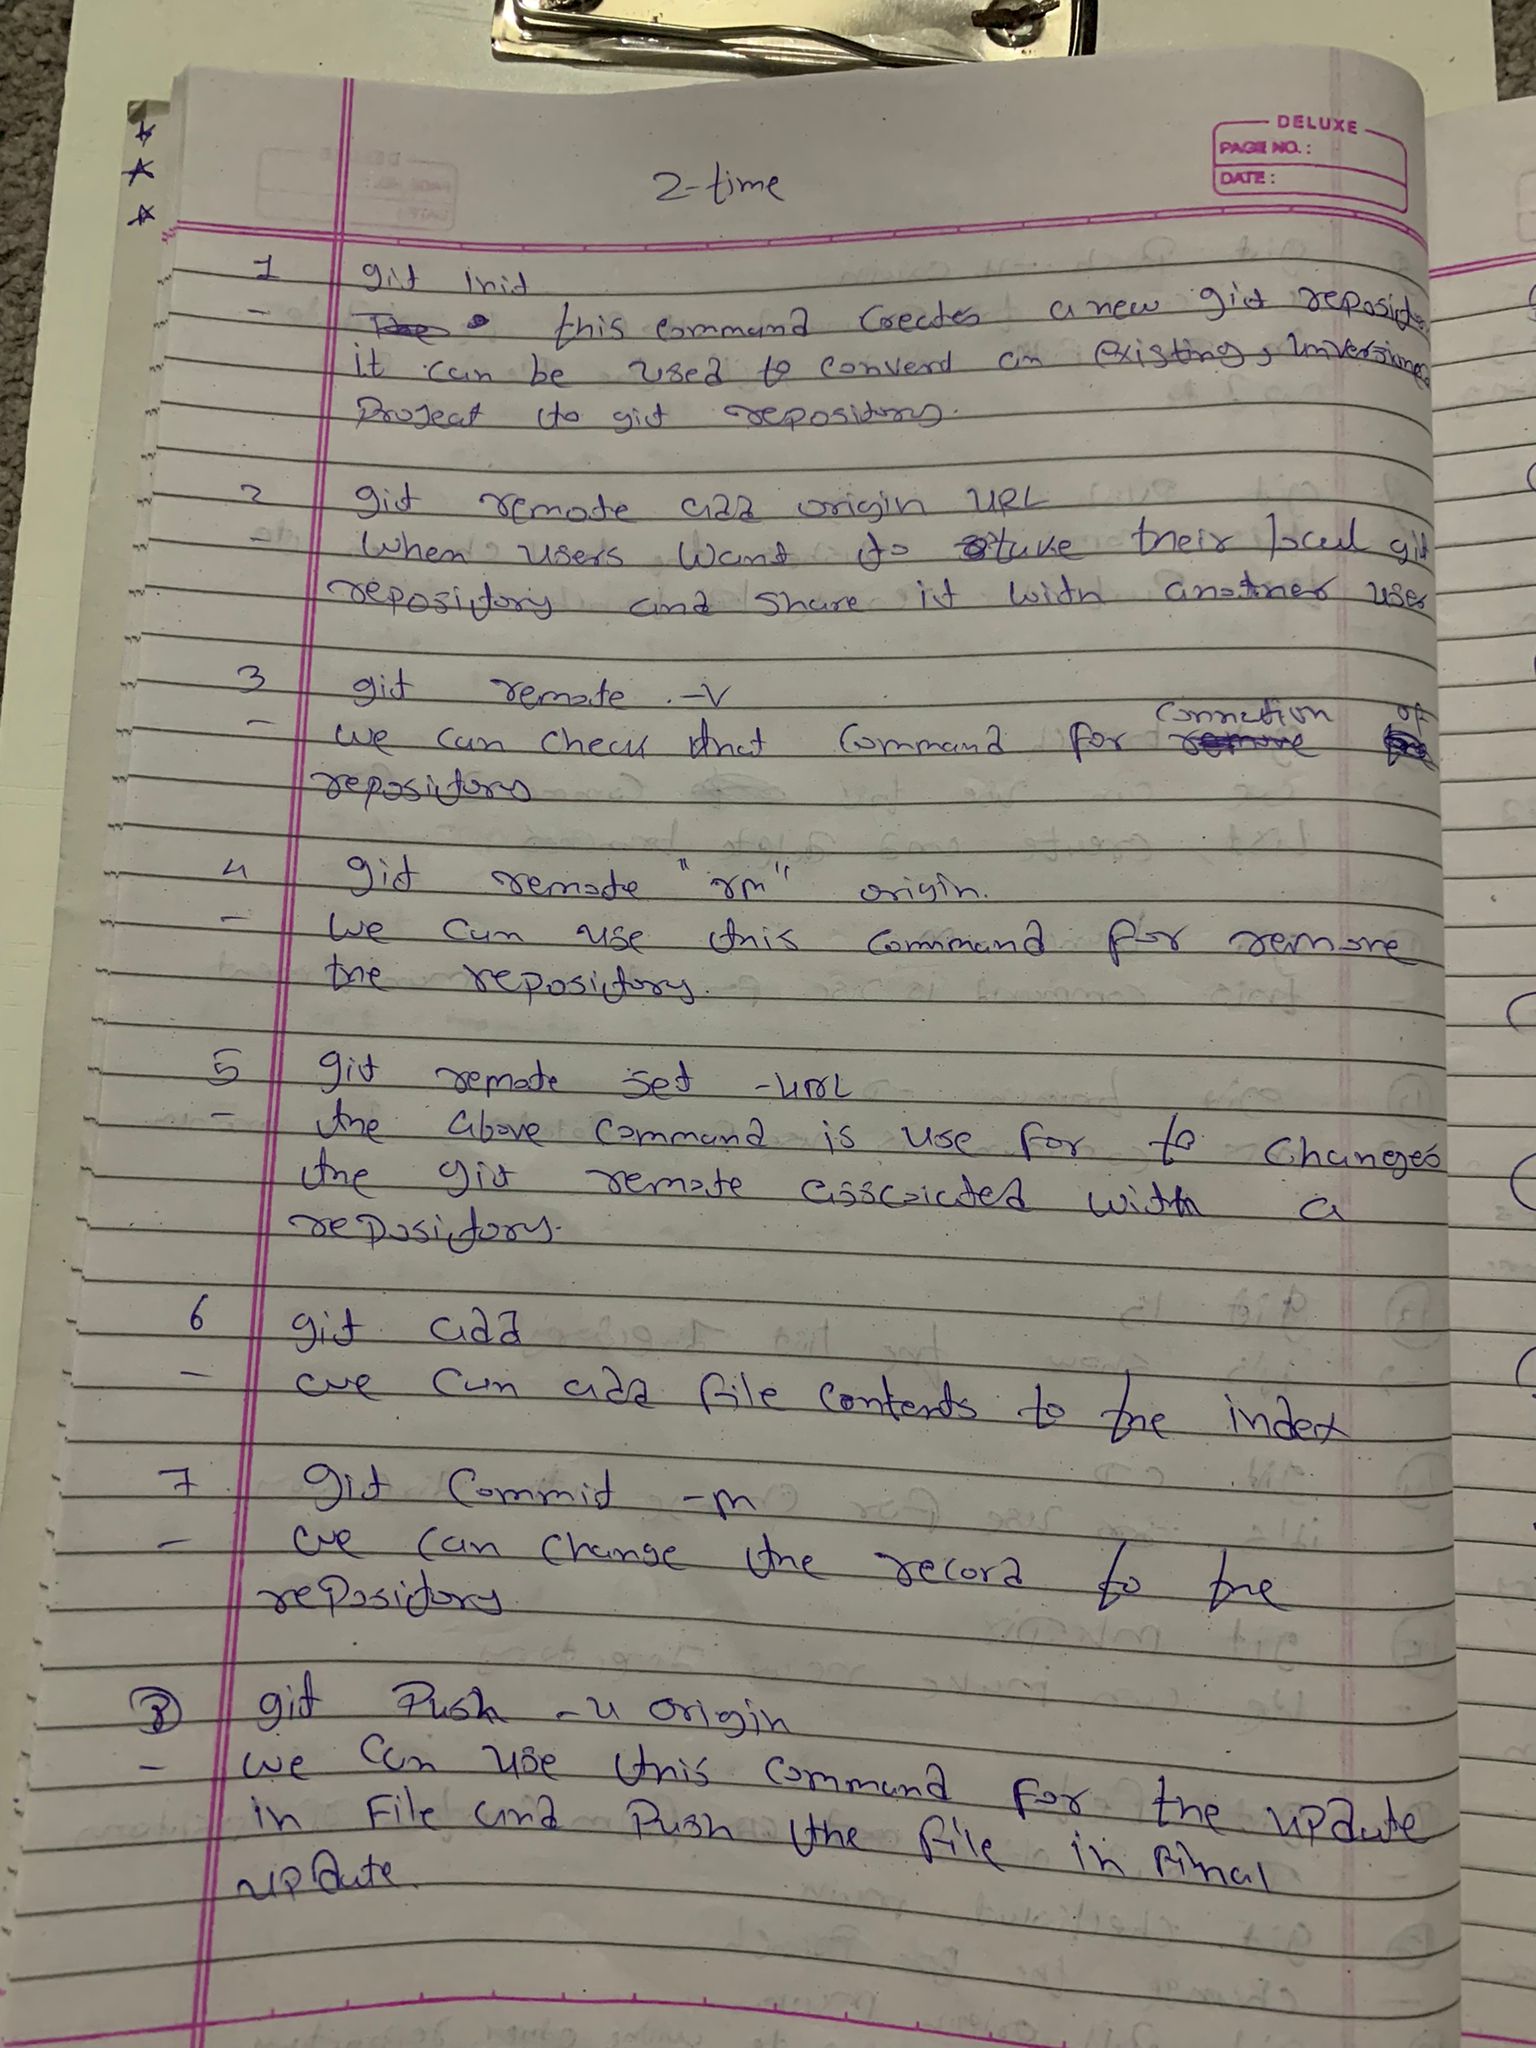 DELUXE
PAGE NO. :
DATE :
2-time
1 git init
- this command creates a new git reposito
it can be used to convert an existing, unversioned
Project to git repository.
2 git remote add origin URL
- When users want to stuve their local git
repository and share it with another user
3 git remote -v
connection of
- we can check that command for remove
repository
4 git remote "rm" origin.
- we can use this command for remove
the repository.
5 git remote set -url
- the above command is use for to changes
the git remote asscoicted with a
repository.
6 git add
- we can add file contents to the index
7 git commit -m
- we can change the record to the
repository
8 git Push -u origin
- we can use this command for the update
in file and Push the file in final
update.